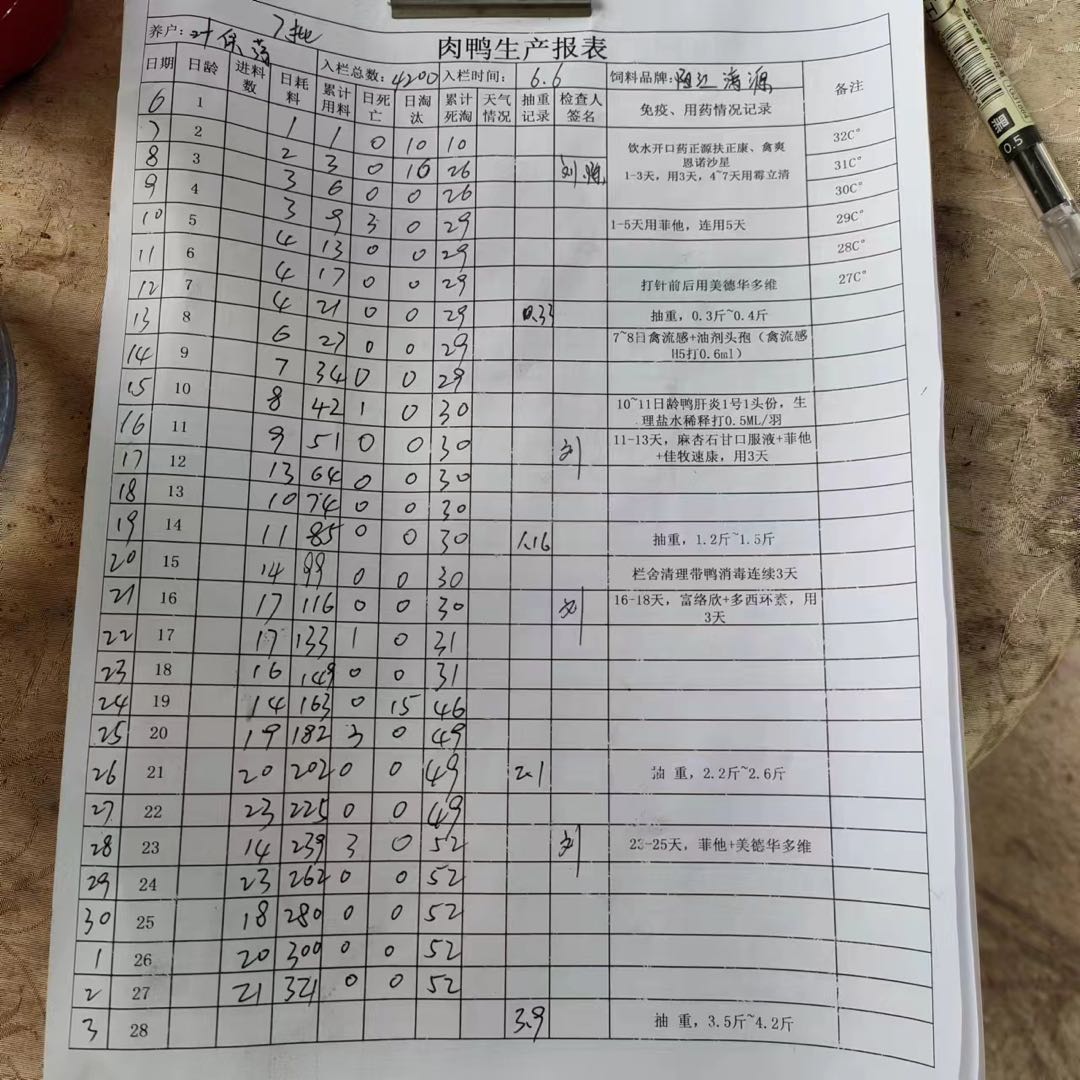 7批
养户：叶保
肉鸭生产报表
日期 日龄 进料数 日耗料 入栏总数：4200 入栏时间：6.6 饲料品牌： 备注
累计用料 日死亡 日淘汰 累计死淘 天气情况 抽重记录 检查人签名 免疫、用药情况记录
6 1 1 1 0 10 10 饮水开口药正源扶正康、禽爽 32C°
恩诺沙星
7 2 2 3 0 16 26 刘 1-3天，用3天，4~7天用霉立清 31C°
8 3 3 6 0 0 26 30C°
9 4 3 9 3 0 29 1-5天用菲他，连用5天 29C°
10 5 4 13 0 0 29 28C°
11 6 4 17 0 0 29 打针前后用美德华多维 27C°
12 7 4 21 0 0 29 0.33 抽重，0.3斤~0.4斤
13 8 6 27 0 0 29 7~8日禽流感+油剂头孢（禽流感
H5打0.6ml）
14 9 7 34 0 0 29
15 10 8 42 1 0 30 10~11日龄鸭肝炎1号1头份，生
理盐水稀释打0.5ML/羽
16 11 9 51 0 0 30 刘 11-13天，麻杏石甘口服液+菲他
+佳牧速康，用3天
17 12 13 64 0 0 30
18 13 10 74 0 0 30
19 14 11 85 0 0 30 1.16 抽重，1.2斤~1.5斤
20 15 14 99 0 0 30 栏舍清理带鸭消毒连续3天
21 16 17 116 0 0 30 刘 16-18天，富络欣+多西环素，用
3天
22 17 17 133 1 0 31
23 18 16 149 0 0 31
24 19 14 163 0 15 46
25 20 19 182 3 0 49
26 21 20 202 0 0 49 2.1 抽 重，2.2斤~2.6斤
27 22 23 225 0 0 49
28 23 14 239 3 0 52 刘 23-25天，菲他+美德华多维
29 24 23 262 0 0 52
30 25 18 280 0 0 52
1 26 20 300 0 0 52
2 27 21 321 0 0 52
3 28 3.9 抽 重，3.5斤~4.2斤
黑
0.5